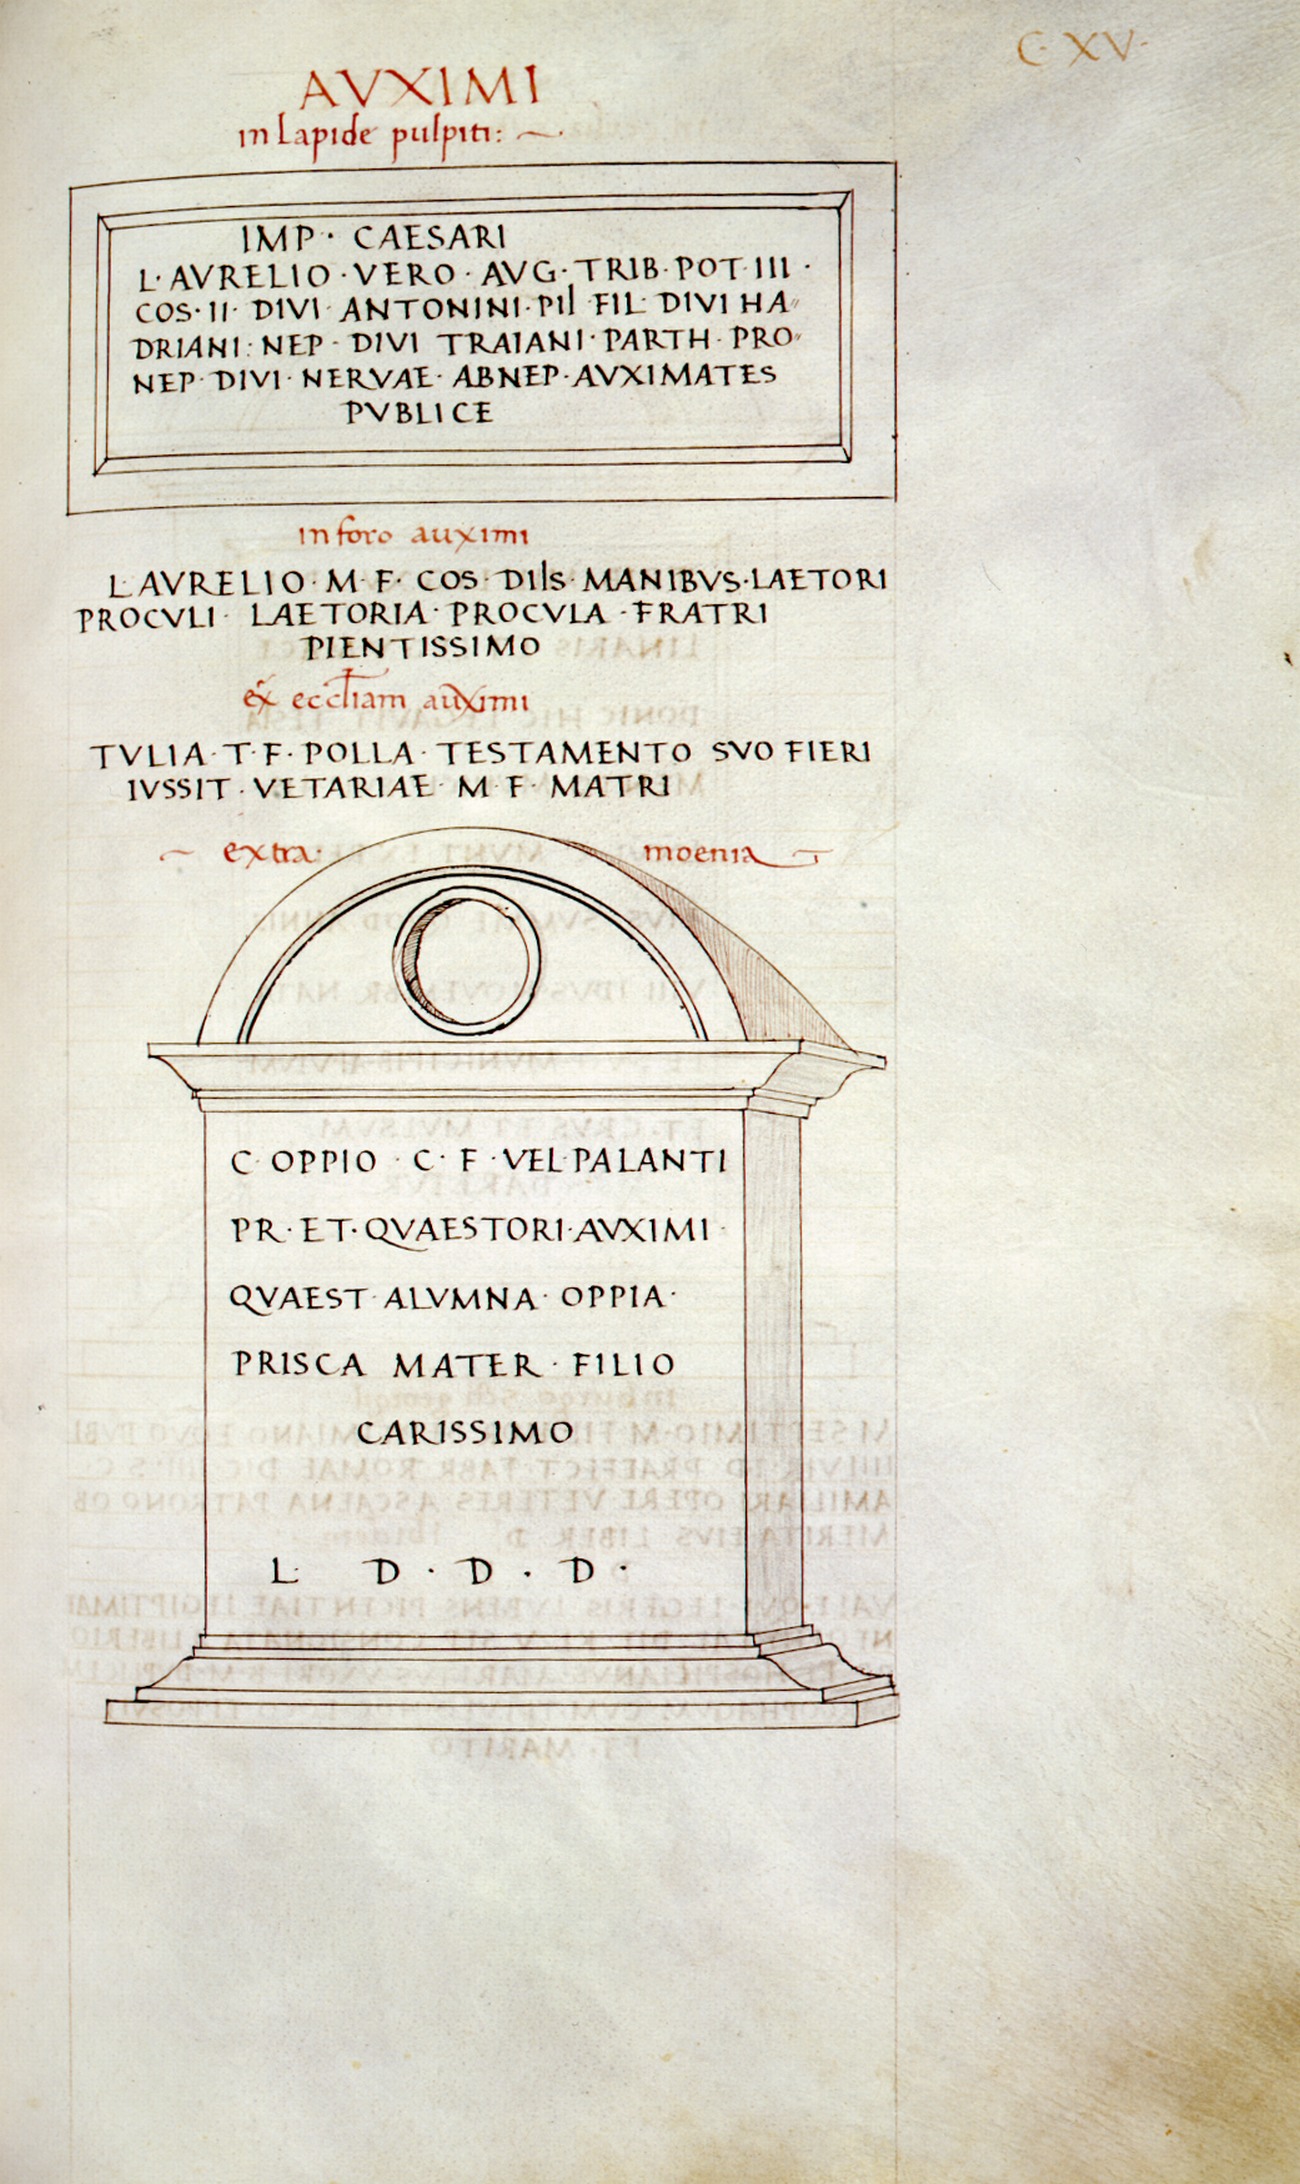 C·XV·
AVXIMI
in lapide pulpiti:
IMP· CAESARI
L·AVRELIO·VERO·AVG·TRIB·POT·III·
COS·II·DIVI·ANTONINI·PII·FIL·DIVI HA
DRIANI:NEP·DIVI TRAIANI·PARTH·PRO
NEP·DIVI·NERVAE·ABNEP·AVXIMATES
PVBLICE
in foro auximi
L·AVRELIO·M·F·COS·DIIS·MANIBVS·LAETORI
PROCVLI·LAETORIA·PROCVLA·FRATRI
PIENTISSIMO
ex eccliam auximi
TVLIA·T·F·POLLA·TESTAMENTO SVO FIERI
IVSSIT·VETARIAE·M·F·MATRI
extra· moenia
C·OPPIO·C·F·VEL·PALANTI
PR·ET·QVAESTORI·AVXIMI·
QVAEST·ALVMNA·OPPIA·
PRISCA MATER·FILIO
CARISSIMO
L· D·D·D·